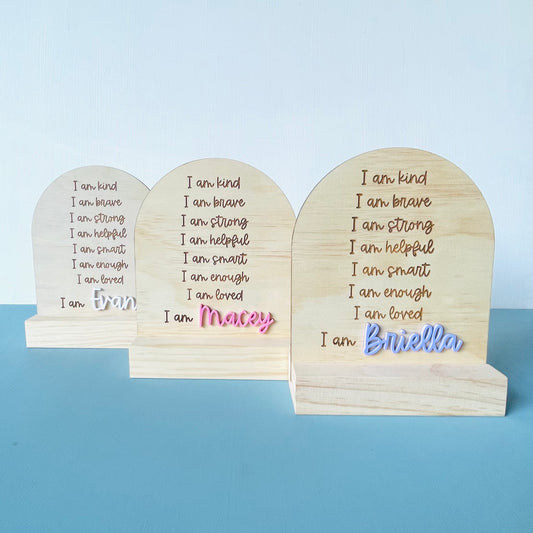 I am kind
I am brave
I am strong
I am helpful
I am smart
I am enough
I am loved
I am Evan
I am kind
I am brave
I am strong
I am helpful
I am smart
I am enough
I am loved
I am Macey
I am kind
I am brave
I am strong
I am helpful
I am smart
I am enough
I am loved
I am Briella